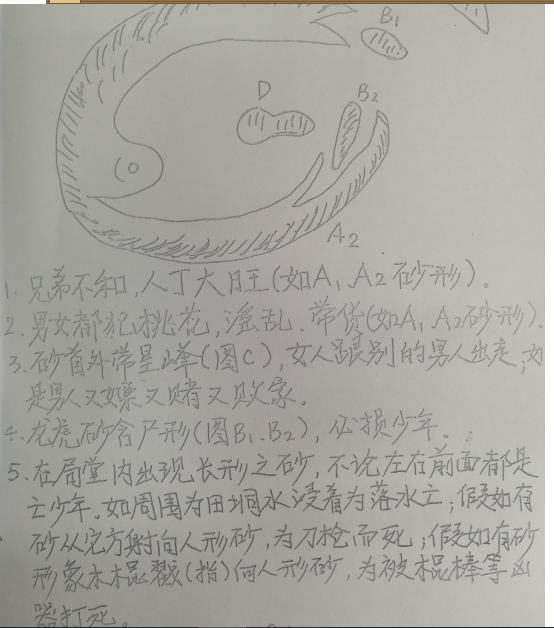 B₁
D
B₂
A₂
1. 兄弟不和,人丁大旺(如A₁、A₂砂形)。
2. 男女都犯桃花,淫乱、带货(如A₁、A₂砂形)。
3. 砂首外带星峰(图C),女人跟别的男人出走;如
是男人又嫖又赌又败家。
4. 龙虎砂含尸形(图B₁、B₂),必损少年。
5. 在局堂内出现长形之砂,不论左右前面都是
亡少年。如周围为田垌水浸着为落水亡;假如有
砂从它方射向人形砂,为刀枪而死;假如有砂
形象木棍戳(指)向人形砂,为被棍棒等凶
器打死。